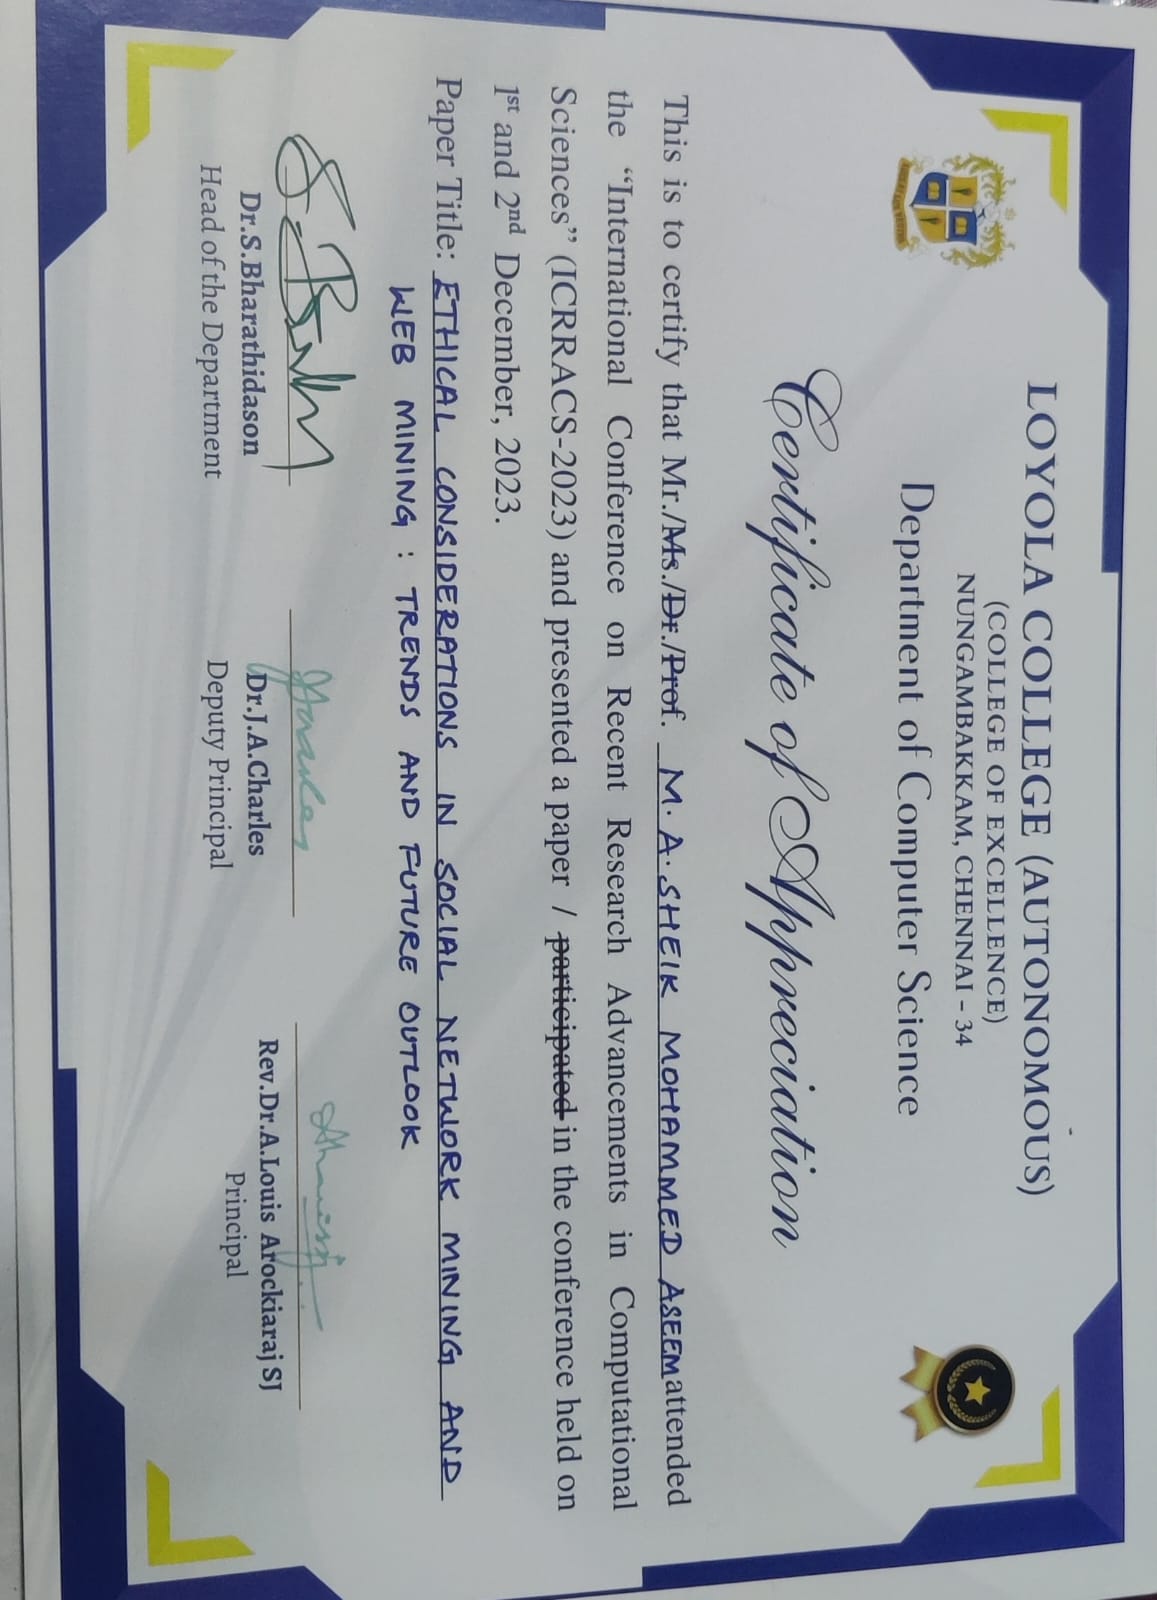 LOYOLA COLLEGE (AUTONOMOUS)
(COLLEGE OF EXCELLENCE)
NUNGAMBAKKAM, CHENNAI - 34
Department of Computer Science
Certificate of Appreciation
This is to certify that Mr./Ms./Dr./Prof. M. A. SHEIK MOHAMMED ASEEM attended
the “International Conference on Recent Research Advancements in Computational
Sciences” (ICRRACS-2023) and presented a paper / participated in the conference held on
1st and 2nd December, 2023.
Paper Title: ETHICAL CONSIDERATIONS IN SOCIAL NETWORK MINING AND
WEB MINING : TRENDS AND FUTURE OUTLOOK
Dr.S.Bharathidason
Head of the Department
Dr.J.A.Charles
Deputy Principal
Rev.Dr.A.Louis Arockiaraj SJ
Principal